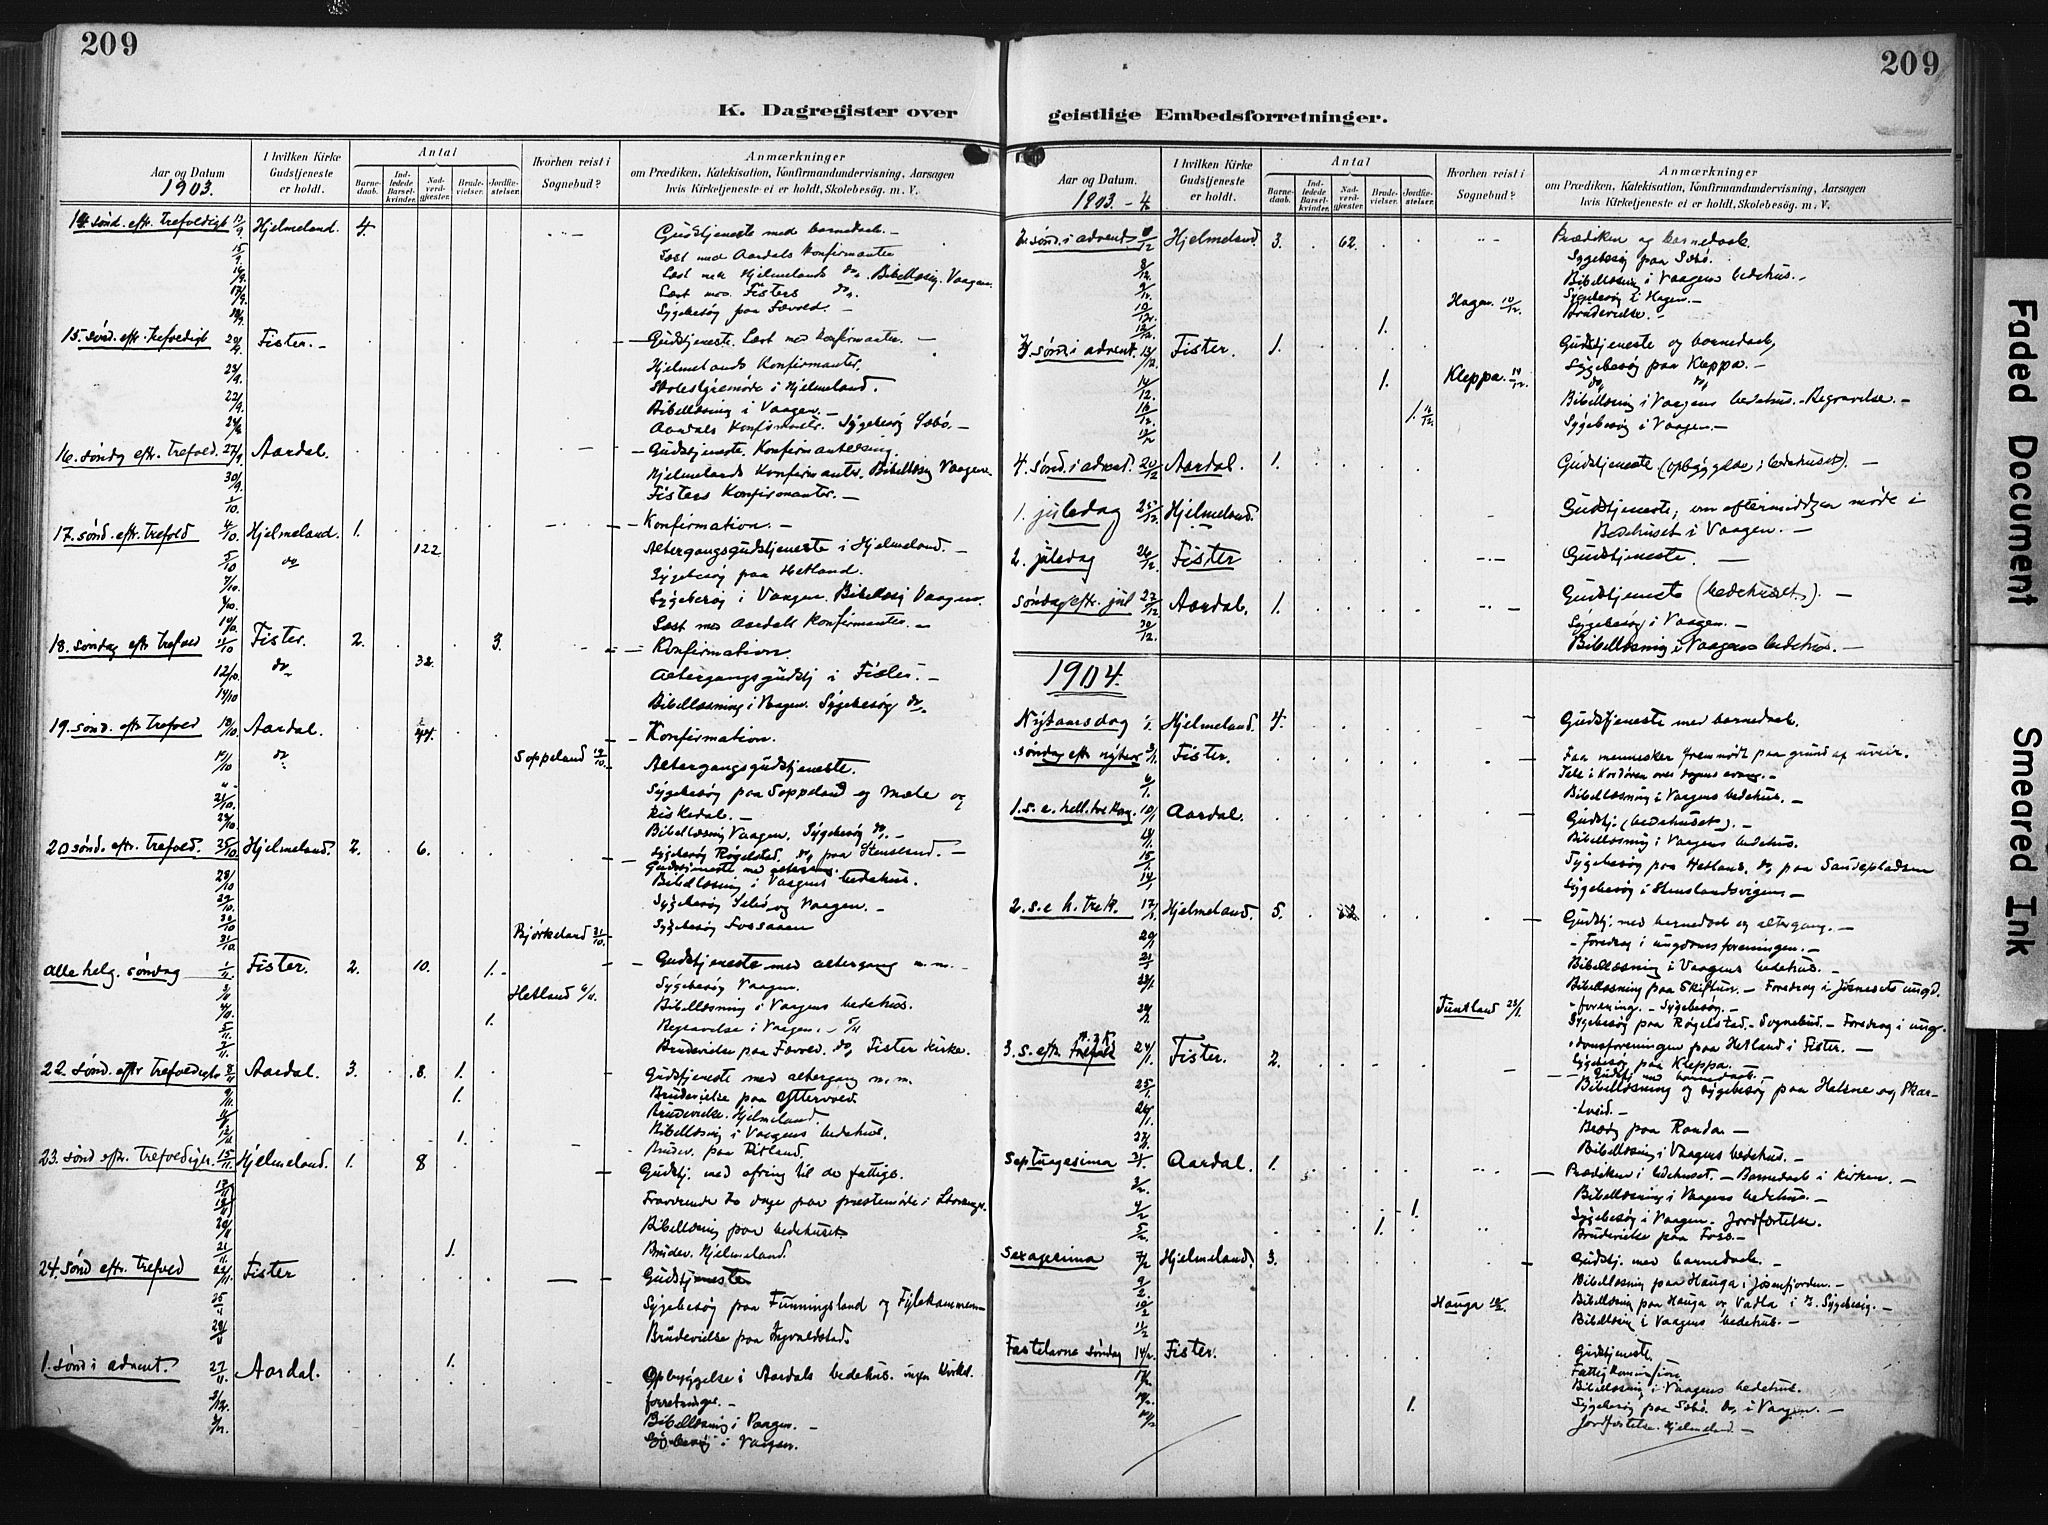 209
209
K. Dagregister over geistlige Embedsforretninger.
Aar og Datum
1903.
I hvilken Kirke Gudstjeneste er holdt.
Antal
Barnedaab.
Indledede Barselkvinder.
Nadverdgjæster.
Brudevielser.
Jordfæstelser.
Hvorhen reist i Sognebud?
Anmærkninger
om Prædiken, Katekisation, Konfirmandundervisning, Aarsagen
hvis Kirketjeneste ei er holdt, Skolebesøg. m. V.
14 sønd. eft. trefoldigh 13/9. Hjelmeland. 4. Gudstjeneste med barnedaab. –
15/9. Læst med Aardals konfirmanter
16/9. Læst med Hjelmelands do, Bibellæsnig. Vaagen.
17/9. Læst med Fisters do,
Sygebesøg paa
15. sønd. eft. trefoldigh 20/9 Fister. – Gudstjeneste. Læst med konfirmanter. –
Hjelmelands Konfirmanter.
Skolestyremøde i Hjelmeland.
22/9. Bibellæsning i Vaagen. –
Aardals Konfirmanter. Sygebesøg
16. søndg eftr. trefold. 27/9 Aardal. – Gudstjeneste, Konfirmantlæsing.
30/9. Hjelmelands Konfirmanter. Bibellæsnig Vaagen.
1/10. Fisters Konfirmanter. –
17. sønd. eftr. trefold 4/10. Hjelmeland. 1. – Konfirmation. –
5/10 do 122 Altergangsgudstjeneste i Hjelmeland. –
7/10. Sygebesøg paa Hetland.
Sygebesøg i Vaagen. Bibellæsnig Vaagen.
Læst med Aardals Konfirmanter. –
18. søndag eftr. trefold 11/10 Fister. 2. 3. – Konfirmation.
12/10. do 32 Altergangsgudstj i Fister. –
14/10 Bibellæsning i Vaagen. Sygebesøg do.
19. sønd. eftr trefold 18/10. Aardal. – Konfirmation.
19/10 do 44. Soppeland 19/10. Altergangsgudstjeneste.
Sygebesøg paa Soppeland og Mæle og
Riskedal. –
Bibellæsning Vaagen. Sygebesøg do, –
20 sønd. eftr. trefold. 25/10. Hjelmeland. 2. 6. Sygebesøg Røgelstad. do, paa Stensland. –
Gudstjeneste med altergang.
28/10 Bibellæsning i Vaagens bedehus.
29/10. Sygebesøg og Vaagen. –
30/10 Sygebesøg Fossaaen
31/10. Bjørkeland 31/10.
Alle helg. søndag 1/11. Fister. 2. 10. 1. – Gudstjeneste med altergang m. m. –
Hetland 6/11. Sygebesøg Vaagen.
Bibellæsning i Vaagens bedehus.
1. Begravelse i Vaagen. – 5/11
Brudevielse paa do, Fister kirke.
22. sønd. eftr trefoldigh. 8/11 Aardal. 3. 8. 1. Gudstjeneste med altergang m. m.
9/11. 1. Brudevielse paa
Brudevielse. Hjelmeland.
1. Bibellæsning i Vaagens bedehus.
Brudev. paa Ritland.
23. sønd eftr. trefoldigh. 15/11. Hjelmeland. 1. 8 Gudstj. med ofring til de fattige.
Fraværende to dage paa prestemøde i Stavanger.
Bibellæsning paa bedehuset.
21/11. 1. Brudev. Hjelmeland.
24. sønd eftr. trefold 22/11. Fister Gudstjeneste
25/11 Sygebesøg paa Funningsland og
28/11 Brudevielse paa Ingvaldstad.
1. sønd i advent. Aardal. 1. Opbyggelse i Aardals bedehus. ingen kirkel.
forretninger. –
2/12. Bibellæsning i Vaagen. –
Sygebesøg i Vaagen.
Aar og Datum.
1903. –
I hvilken Kirke Gudstjeneste er holdt.
Antal
Barnedaab.
Indledede Barselkvinder.
Nadverdgjæster.
Brudevielser.
Jordfæstelser.
Hvorhen reist i Sognebud?
Anmærkninger
om Prædiken, Katekisation, Konfirmandundervisning, Aarsagen
hvis Kirketjeneste ei er holdt, Skolebesøg. m. V.
2. sønd. i advent Hjelmeland. 3. 62. Prædiken og barnedaab.
8/12. Sygebesøg paa
9/12. Bibellæsning i Vaagens bedehus. –
10/12. Hagen. 10/12. Sygebesøg i Hagen. –
12/12. 1. Brudevielse. –
3. sønd. i advent. 13/12. Fister. 1. Gudstjeneste og barnedaab,
14/12. 1. Kleppa. 14/12. Sygebesøg paa Kleppa. –
16/12. 1. Bibellæsning i Vaagens bedehus. – Begravelse. –
Sygebesøg i Vaagen. –
4. sønd. i advent. 20/12 Aardal. 1. Gudstjeneste (opbyggelse i bedehuset). –
1. juledag 25/12. Hjelmeland. Gudstjeneste; om eftermiddagen møde i
Bedehuset i Vaagen. –
2. juledag 26/12. Fister Gudstjeneste. –
søndag eftr. jul 27/12 Aardal. 1. Gudstjeneste (bedehuset). –
30/12. Sygebesøg i Vaagen. –
Bibellæsning i Vaagens bedehus. –
1904.
Nytaarsdag 1/1. Hjelmeland. 4. Gudstjeneste med barnedaab.
søndag eftr nytaar 3/1. Fister. Faa mennesker fremmødt paa grund af uveir.
Tale i Kordøren over dagens evang. –
6/1. Bibellæsning i Vaagens bedehus. –
1. s. e. hell. tre kong. 10/1 Aardal. Gudstj. (bedehuset). –
13/1. Bibellæsning i Vaagens bedehus.
15/1 Sygebesøg paa Hetland, do, paa Sandepladsen
Sygebesøg i Stenslandsvigen. –
2. s. e h. tre k. 17/1. Hjelmeland. 5. 62 Gudstj. med barnedaab og altergang. –
20/1 – Foredrag i ungdomsforeningen. –
21/1 Bibellæsning i Vaagens bedehus. –
Bibellæsning paa Skiftun. – Foredrag i Jøsenets ungd.
forening. – Sygebesøg. –
Tuntland 23/1. Sygebesøg paa Røgelstad. – Sognebud. – Foredrag i ung-
domsforeningen paa Hetland i Fister. –
Sygebesøg paa Kleppa. –
3. s. eftr 24/1. Fister. 2. – Gudstj med barnedaab. –
25/1. Bibellæsning og sygebesøg paa Helene og Skar-
tveid. –
26/1. Besøg paa Randa. –
27/1. Bibellæsning i Vaagens bedehus. –
Septuagesima 31/1. Aardal. 1. Prædiken i bedehuset. – Barnedaab i kirken. –
3/2. Bibellæsning i Vaagens bedehus. –
4/2 1. Sygebesøg i Vaagen. – Jordfæstelse.
5/2. 1. Brudevielse paa Foss. –
Sexagesima 7/2 Hjelmeland. 3. Gudstj. med barnedaab.
9/2. Bibellæsning paa Hauga i Jøsenfjorden. –
10/2 Hauga 10/2. Bibellæsning paa Hauga og Vadla i do. Sygebesøg. –
11/2 Bibellæsning i Vaagens bedehus. –
Fastelavns søndag 14/2. Fister. Gudstjeneste.
Fattigkommission
Bibellæsning i Vaagens bedehus.
1. Sygebesøg paa do, i Vaagen. –
Jordfæstelse. Hjelmeland. –
Faded Document
Smeared Ink